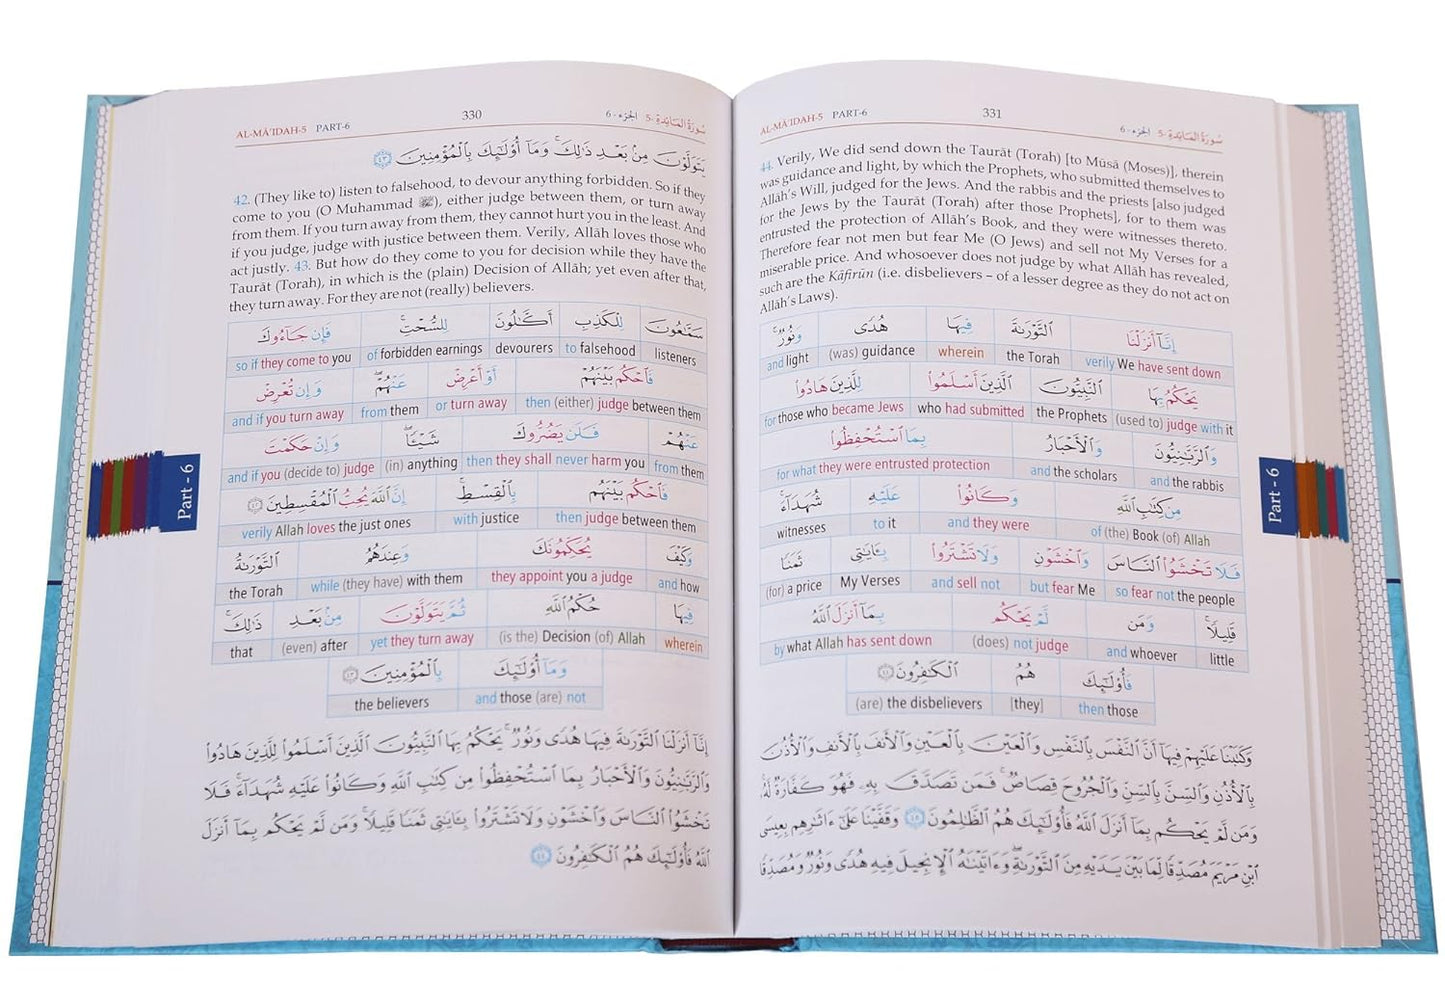 AL-MĀ'IDAH-5 PART-6 330 الجزء - 6 سورة المائدة - 5
يَتَوَلَّوْنَ مِنۢ بَعْدِ ذَٰلِكَ ۚ وَمَآ أُو۟لَـٰٓئِكَ بِٱلْمُؤْمِنِينَ ٤٣
42. (They like to) listen to falsehood, to devour anything forbidden. So if they
come to you (O Muhammad ﷺ), either judge between them, or turn away
from them. If you turn away from them, they cannot hurt you in the least. And
if you judge, judge with justice between them. Verily, Allāh loves those who
act justly. 43. But how do they come to you for decision while they have the
Taurāt (Torah), in which is the (plain) Decision of Allāh; yet even after that,
they turn away. For they are not (really) believers.
سَمَّـٰعُونَ لِلْكَذِبِ أَكَّـٰلُونَ لِلسُّحْتِ ۚ فَإِن جَآءُوكَ
so if they come to you of forbidden earnings devourers to falsehood listeners
فَٱحْكُم بَيْنَهُمْ أَوْ أَعْرِضْ عَنْهُمْ ۖ وَإِن تُعْرِضْ
and if you turn away from them or turn away then (either) judge between them
عَنْهُمْ فَلَن يَضُرُّوكَ شَيْـًٔا ۖ وَإِنْ حَكَمْتَ
and if you (decide to) judge (in) anything then they shall never harm you from them
فَٱحْكُم بَيْنَهُم بِٱلْقِسْطِ ۚ إِنَّ ٱللَّهَ يُحِبُّ ٱلْمُقْسِطِينَ ٤٢
verily Allah loves the just ones with justice then judge between them
وَكَيْفَ يُحَكِّمُونَكَ وَعِندَهُمُ ٱلتَّوْرَىٰةُ
the Torah while (they have) with them they appoint you a judge and how
فِيهَا حُكْمُ ٱللَّهِ ثُمَّ يَتَوَلَّوْنَ مِنۢ بَعْدِ ذَٰلِكَ ۚ
that (even) after yet they turn away (is the) Decision (of) Allah wherein
وَمَآ أُو۟لَـٰٓئِكَ بِٱلْمُؤْمِنِينَ ٤٣
the believers and those (are) not
إِنَّآ أَنزَلْنَا ٱلتَّوْرَىٰةَ فِيهَا هُدًى وَنُورٌ ۚ يَحْكُمُ بِهَا ٱلنَّبِيُّونَ ٱلَّذِينَ أَسْلَمُوا۟ لِلَّذِينَ هَادُوا۟
وَٱلرَّبَّـٰنِيُّونَ وَٱلْأَحْبَارُ بِمَا ٱسْتُحْفِظُوا۟ مِن كِتَـٰبِ ٱللَّهِ وَكَانُوا۟ عَلَيْهِ شُهَدَآءَ ۚ فَلَا
تَخْشَوُا۟ ٱلنَّاسَ وَٱخْشَوْنِ وَلَا تَشْتَرُوا۟ بِـَٔايَـٰتِى ثَمَنًا قَلِيلًا ۚ وَمَن لَّمْ يَحْكُم بِمَآ أَنزَلَ
ٱللَّهُ فَأُو۟لَـٰٓئِكَ هُمُ ٱلْكَـٰفِرُونَ ٤٤
Part - 6
AL-MĀ'IDAH-5 PART-6 331 الجزء - 6 سورة المائدة - 5
44. Verily, We did send down the Taurāt (Torah) [to Mūsā (Moses)], therein
was guidance and light, by which the Prophets, who submitted themselves to
Allāh's Will, judged for the Jews. And the rabbis and the priests [also judged
for the Jews by the Taurāt (Torah) after those Prophets], for to them was
entrusted the protection of Allāh's Book, and they were witnesses thereto.
Therefore fear not men but fear Me (O Jews) and sell not My Verses for a
miserable price. And whosoever does not judge by what Allāh has revealed,
such are the Kāfirūn (i.e. disbelievers – of a lesser degree as they do not act on
Allāh's Laws).
إِنَّآ أَنزَلْنَا ٱلتَّوْرَىٰةَ فِيهَا هُدًى وَنُورٌ ۚ
and light (was) guidance wherein the Torah verily We have sent down
يَحْكُمُ بِهَا ٱلنَّبِيُّونَ ٱلَّذِينَ أَسْلَمُوا۟ لِلَّذِينَ هَادُوا۟
for those who became Jews who had submitted the Prophets (used to) judge with it
وَٱلرَّبَّـٰنِيُّونَ وَٱلْأَحْبَارُ بِمَا ٱسْتُحْفِظُوا۟
for what they were entrusted protection and the scholars and the rabbis
مِن كِتَـٰبِ ٱللَّهِ وَكَانُوا۟ عَلَيْهِ شُهَدَآءَ ۚ
witnesses to it and they were of (the) Book (of) Allah
فَلَا تَخْشَوُا۟ ٱلنَّاسَ وَٱخْشَوْنِ وَلَا تَشْتَرُوا۟ بِـَٔايَـٰتِى ثَمَنًا
(for) a price My Verses and sell not but fear Me so fear not the people
قَلِيلًا ۚ وَمَن لَّمْ يَحْكُم بِمَآ أَنزَلَ ٱللَّهُ
by what Allah has sent down (does) not judge and whoever little
فَأُو۟لَـٰٓئِكَ هُمُ ٱلْكَـٰفِرُونَ ٤٤
(are) the disbelievers [they] then those
وَكَتَبْنَا عَلَيْهِمْ فِيهَآ أَنَّ ٱلنَّفْسَ بِٱلنَّفْسِ وَٱلْعَيْنَ بِٱلْعَيْنِ وَٱلْأَنفَ بِٱلْأَنفِ وَٱلْأُذُنَ
بِٱلْأُذُنِ وَٱلسِّنَّ بِٱلسِّنِّ وَٱلْجُرُوحَ قِصَاصٌ ۚ فَمَن تَصَدَّقَ بِهِۦ فَهُوَ كَفَّارَةٌ لَّهُۥ ۚ
وَمَن لَّمْ يَحْكُم بِمَآ أَنزَلَ ٱللَّهُ فَأُو۟لَـٰٓئِكَ هُمُ ٱلظَّـٰلِمُونَ ٤٥ وَقَفَّيْنَا عَلَىٰٓ ءَاثَـٰرِهِم بِعِيسَى
ٱبْنِ مَرْيَمَ مُصَدِّقًا لِّمَا بَيْنَ يَدَيْهِ مِنَ ٱلتَّوْرَىٰةِ ۖ وَءَاتَيْنَـٰهُ ٱلْإِنجِيلَ فِيهِ هُدًى وَنُورٌ وَمُصَدِّقًا
Part - 6